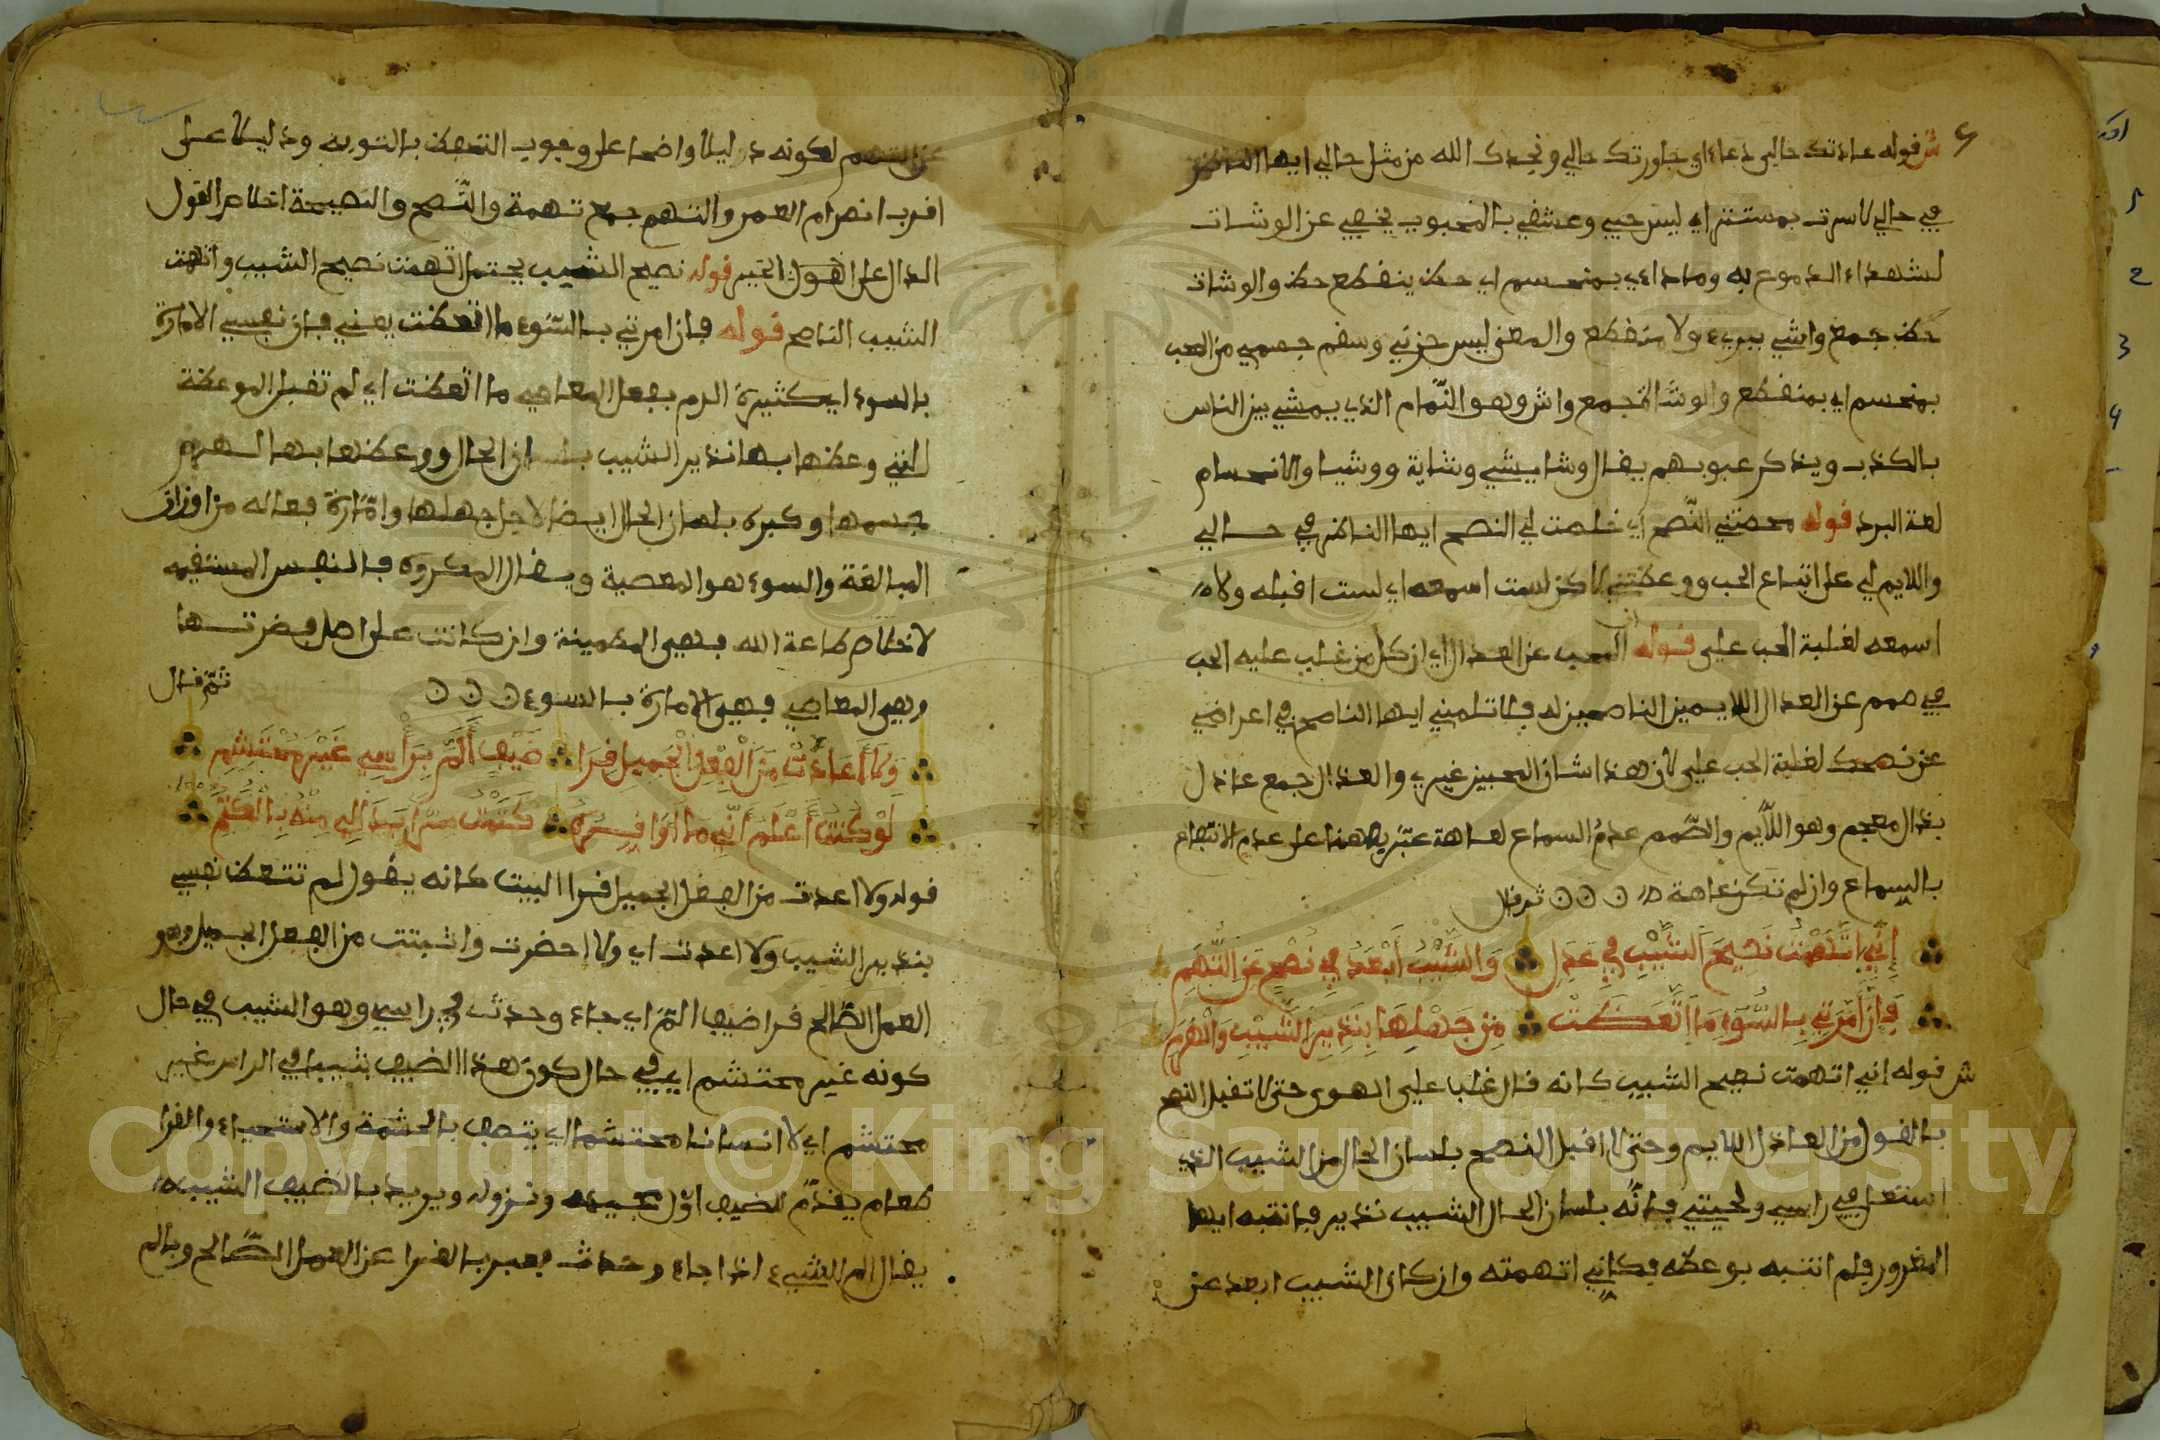 ش قوله عدتك حالي دعاء اي جاورتك حالي ونجدك الله من مثل حالي ايها الناظر
في حالي لا سري بمستتر اي ليس حبي وعشقي بالمحبوب يخفي عن الوشات
لشهداء الدموع به وما داءي بمنحسم اي حتى ينقطع حتى والوشات
جمع واشي ببريء ولا منقطع والمعنى ليس حزني وسقم جسمي من الحب
بمنحسم اي بمنقطع والوشاة جمع واش وهو النّمام الذي يمشي بين الناس
بالكذب ويذكر عيوبهم يقال وشا يشي وشاية ووشيا والانحسام
لغة البرد قوله محضتني النّصح اي خلصت لي النصح ايها الناظر في حالي
واللايم لي على اتباع الحب ووعظتني لاكن لست اسمعه اي لست اقبله ولا
اسمعه لغلبة الحب علي قوله ان المحب عن العذال اي ان كل من غلب عليه الحب
في صمم عن العذال اللايمين الناصحين له فلا تلمني ايها الناصح في اعراضي
عن نصحك لغلبة الحب علي لان هذا شان المحبين غيري والعذال جمع عاذل
بذال معجم وهو اللّايم والصّمم عدم السماع لعاهة عبّر به هنا على عدم الانتفاع
بالسماع وان لم تكن عاهة ثم قال
إِنِّي اتَّهَمْتُ نَصِيحَ الشَّيْبِ فِي عَذَلِ وَالشَّيْبُ أَبْعَدُ فِي نُصْحٍ عَنِ التُّهَمِ
فَإِنَّ أَمَّرَتِي بِالسُّوءِ مَا اتَّعَظَتْ مِنْ جَهْلِهَا بِنَذِيرِ الشَّيْبِ وَالْهَرَمِ
ش قوله اني اتهمت نصيح الشيب كانه قال غلب علي الهوى حتى لا تقبل النصح
بالقول من العاذل اللايم وحتى لا اقبل النصح بلسان الحال من الشيب الذي
اشتعل في راسي ولحيتي فانّه بلسان الحال الشيب نذير فانتبه ايها
المغرور فلم انتبه بوعظه فكاني اتهمته وان كان الشيب ابعد عن
عن التهم لكونه دليلا واضحا على وجوب التحفظ بالتوبه ودليلا على
اقرب انصرام العمر والتهم جمع تهمة والنّصح والنصيحة اخلاص القول
الدال على الخير قوله نصيح الشيب يحتمل اتهمت نصيح الشيب واتهمت
الشيب الناصح قوله فان امرتي بالسّوء ما اتعظت يعني فان نفسي الامارة
بالسوء اي كثيرة الامر بفعل المعاصي ما اتعظت اي لم تقبل الموعظة
التي وعظها بها نذير الشيب بلسان الحال ووعظها بها الهرم
جسمها وكبره بلسان الحال ايضا لاجل جهلها وامّارة فعالة من اوزان
المبالغة والسوء هو المعصية ويقال المكروه فالنفس المستقيمه
لاخلاص طاعة الله فهي المطمينة وان كانت على اصل فطرتها
وهي المعاصي فهي الامارة بالسوء ثمّ قال
وَلَا أَعَدَّتْ مِنَ الْفِعْلِ الْجَمِيلِ قِرَا ضَيْفٍ أَلَمَّ بِرَأْسِي غَيْرَ مُحْتَشِمِ
لَوْ كُنْتُ أَعْلَمُ أَنِّي مَا أُوَقِّرُهُ كَتَمْتُ سِرًّا بَدَا لِي مِنْهُ بِالْكَتَمِ
قوله ولا اعدت من الفعل الجميل قرا البيت كانه يقول لم تتعظ نفسي
بنذير الشيب ولا اعدت اي ولا احضرت واثبتت من الفعل الجميل وهو
العمل الصّالح قرا ضيف المّ اي جاء وحدث في راسي وهو الشيب في حال
كونه غير محتشم اي في حال كون هذا الضيف شيبا في الراس غير
محتشم اي لا انسانا محتشما اي يتصف بالحشمة والاستحياء والقرا
طعام يقدّم للضيف اوّل مجيه ونزوله ويريد بالضيف الشيب
يقال الم الشيء اذا جاء وحدث فعبر بالقرا عن العمل الصّالح وبالم